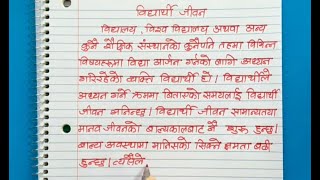 विद्यार्थी जीवन
विद्यालय, विश्व विद्यालय अथवा अन्य
कुनै शैक्षिक संस्थानको कुनैपनि तहमा विभिन्न
विषयहरूमा विद्या आर्जन गर्नको लागि अध्ययन
गरिरहेको व्यक्ति विद्यार्थी हो। विद्यार्थीले
अध्ययन गर्ने क्रममा बिताएको समयलाई विद्यार्थी
जीवन भनिन्छ। विद्यार्थी जीवन सामान्यतया
मानव जीवनको बाल्यकालबाट नै शुरू हुन्छ।
बाल्य अवस्थामा मानिसको सिक्ने क्षमता बढी
हुन्छ। त्यसैले